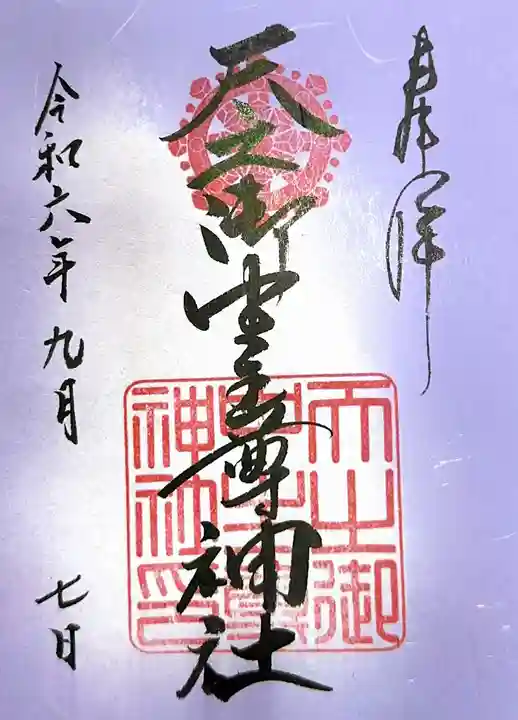 奉拝
天之御中主尊神社
令和六年九月七日
天之御
中主尊
神社印